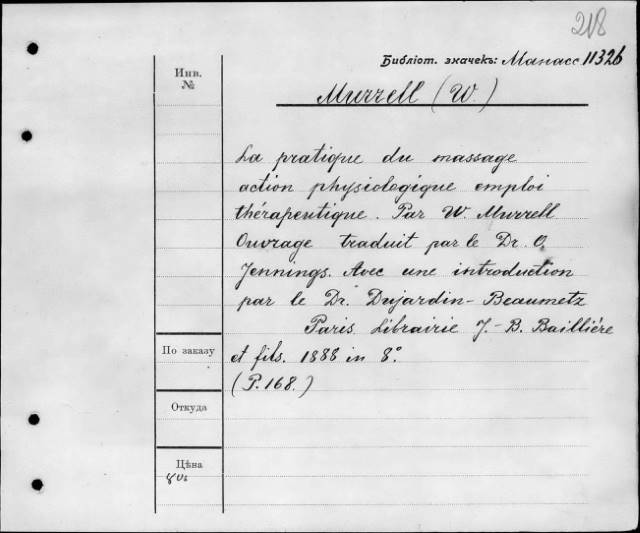 218
Библіот. значекъ: Манасс 11326
Инв.
№
Murrell (W.)
La pratique du massage
action physiologique emploi
thérapeutique. Par W. Murrell
Ouvrage traduit par le Dr. O.
Jennings. Avec une introduction
par le Dr. Dujardin-Beaumetz
Paris. Librairie J.-B. Baillière
et fils. 1888 in 8°.
(P. 168.)
По заказу
Откуда
Цѣна